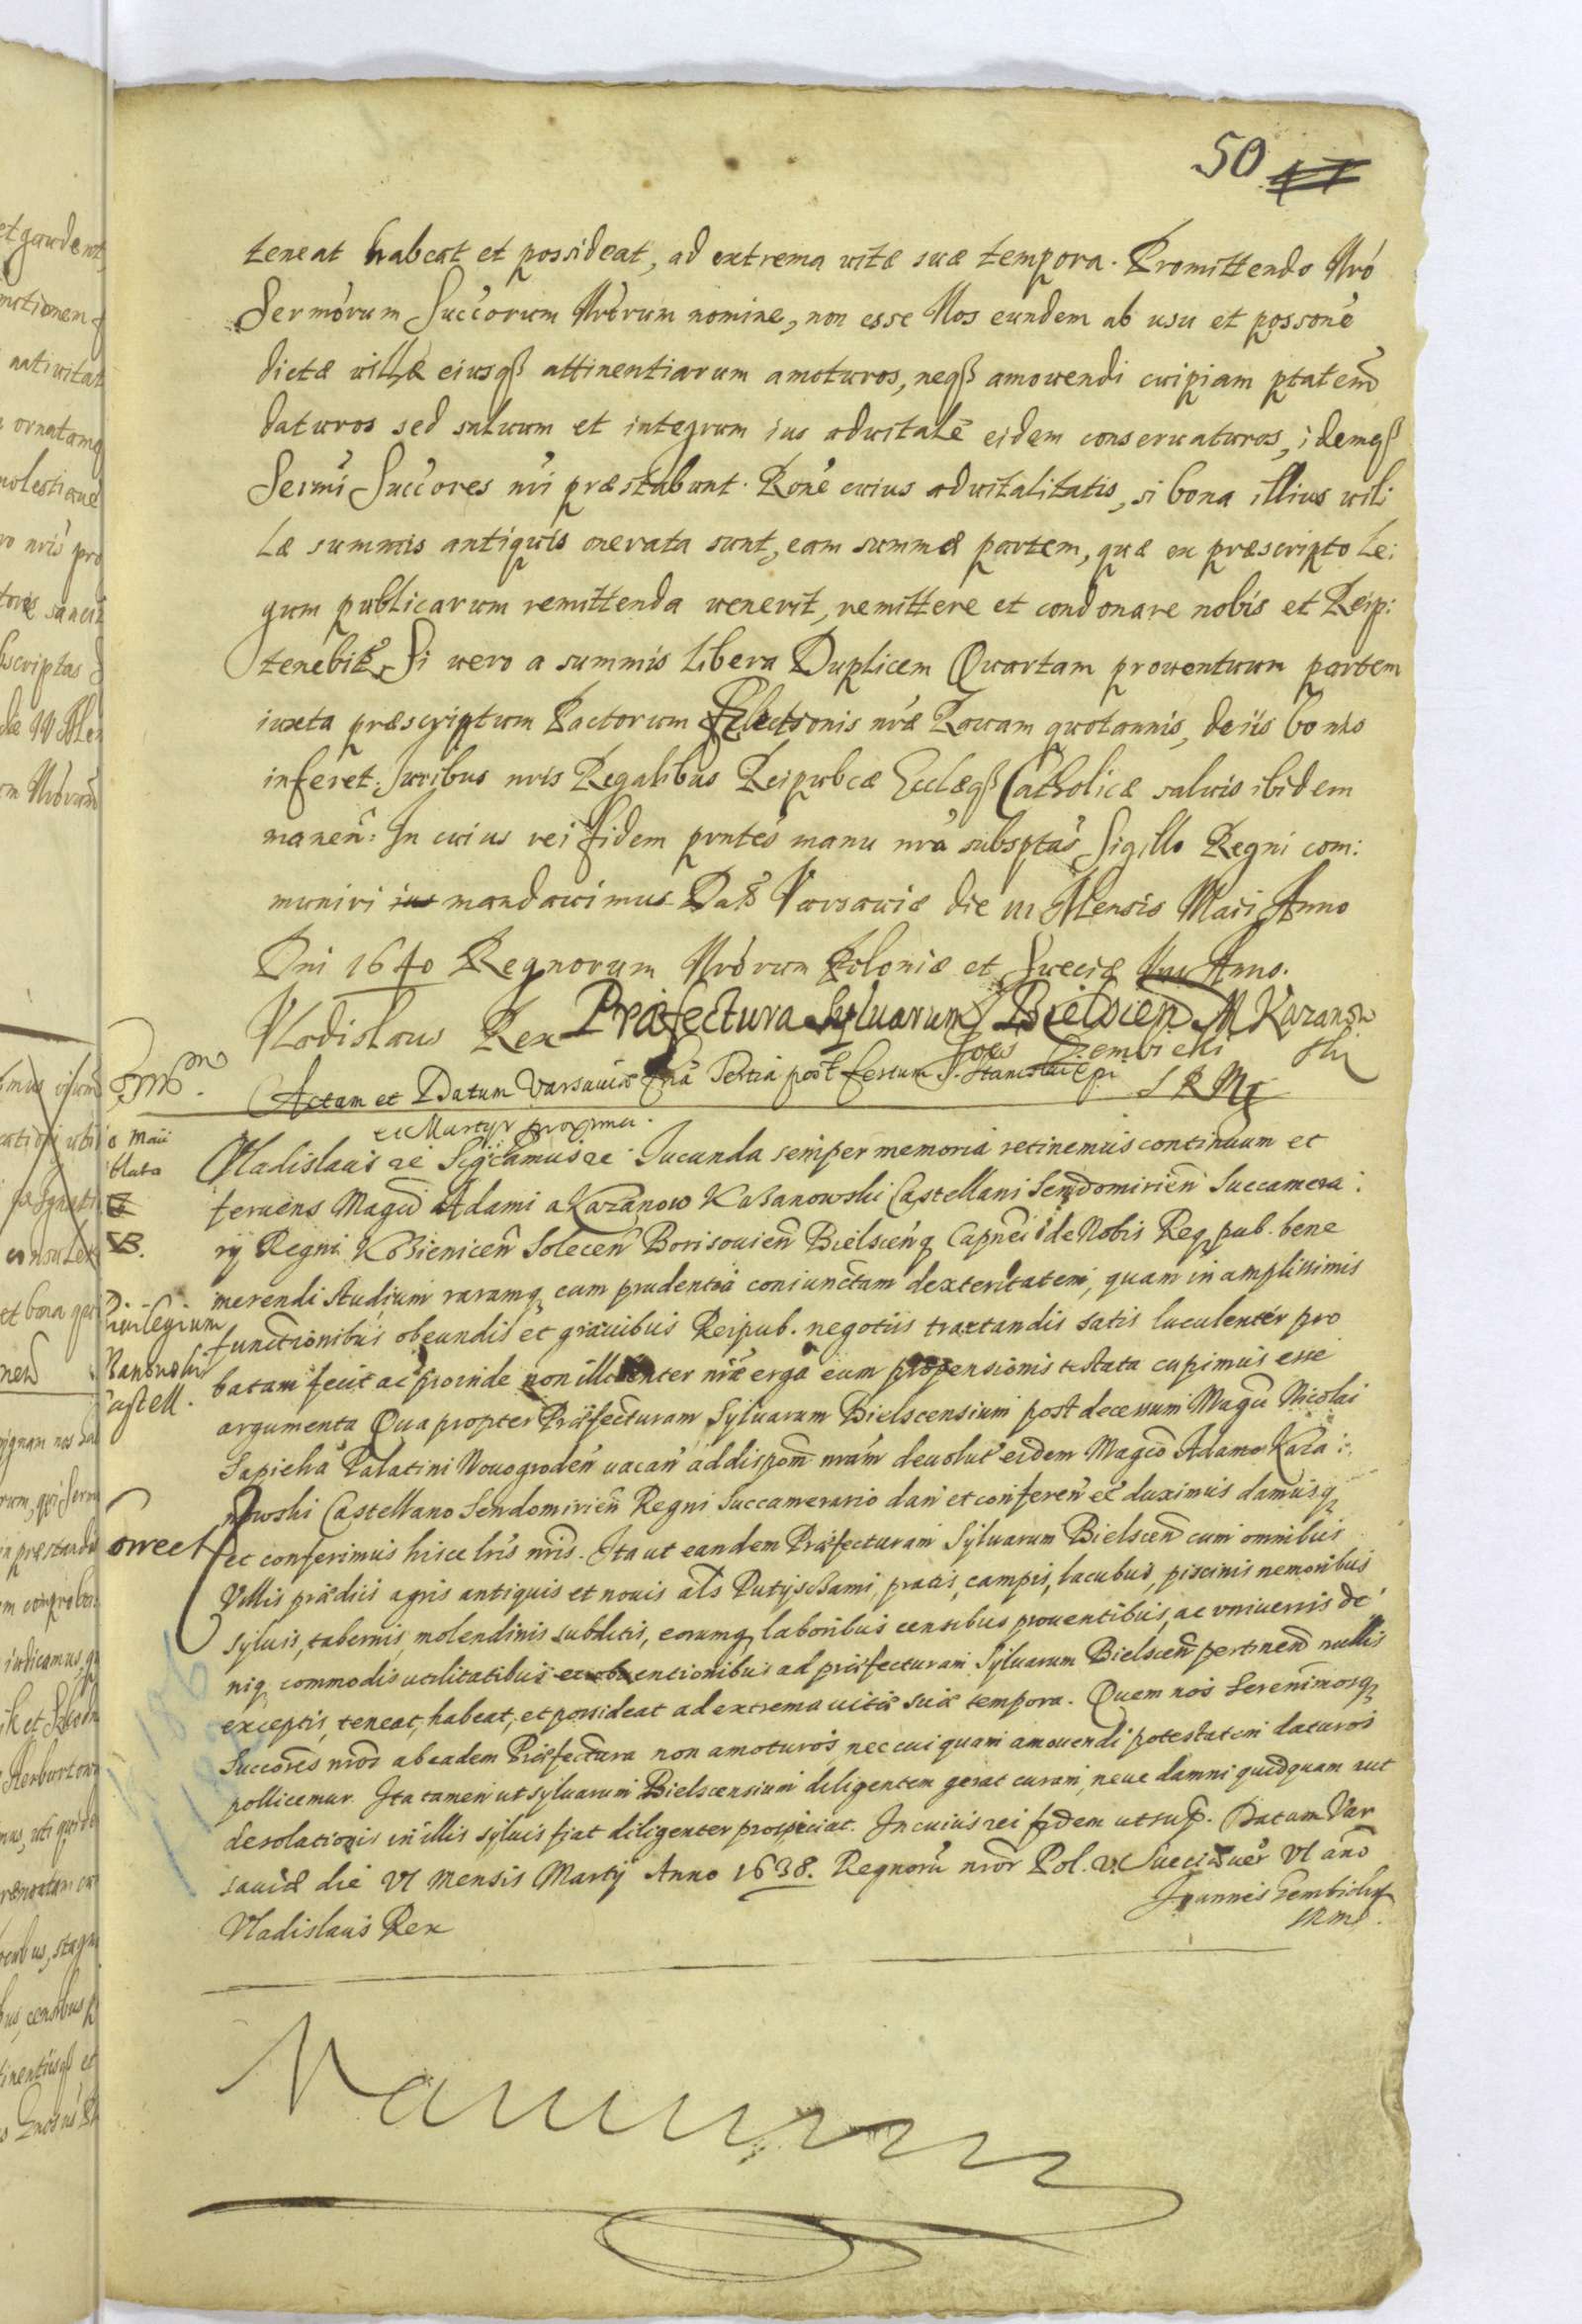 50 47
teneat habeat et possideat, ad extrema vitæ suæ tempora. Promittendo Nro
Sermorum Succorum Nrorum nomine, non esse Nos eundem ab usu et possone
dictæ villæ eiusqß attinentiarum amoturos, neqß amovendi cuipiam ptatem
daturos sed salvum et integrum ius advitale eidem conservaturos, idemqß
Sermi Succores nri præstabunt. Rone cuius advitalitatis, si bona illius vil:
læ summis antiquis onerata sunt, eam summæ partem, quæ ex præscripto le:
gum publicarum remittenda venerit, remittere et condonare nobis et Reip:
tenebit. Si vero a summis libera Duplicem Quartam proventuum partem
iuxta præscriptum Pactorum Electionis nræ Ravam quotannis, de iis bonis
inferet. Juribus nris Regalibus Reipubcæ Ecclæqß Catholicæ salvis ibidem
manen: In cuius rei fidem pntes manu nra subsptas Sigillo Regni com:
muniri ius mandavimus Dat Varsaviæ die III Mensis Maii Anno
Dni 1640 Regnorum Nrorum Poloniæ et Sveciæ Anno.
Vladislaus Rex Præfectura Syluarum Bielscen M Kazanow
ski
Joes Gembicki
Actum et Datum Varsauiæ fria Tertia post festum S. Stanislai Epi S R M
et Martyr proxima.
o Maii
blata
Vladislaus ae Sigcamus ae Jucunda semper memoria retinemus continuum et
feruens Magci Adami a Kazanow Kaßanowski Castellani Sendomirien Succamera:
rij Regni Koßienicen Solecen Borisouien Bielscenq Capnei de Nobis Req pub. bene
merendi studium raramq cum prudentia coniunctam dexteritatem, quam in amplissimis
Priuilegium
functionibus obeundis et grauibus Reipub. negotiis tractandis satis luculenter pro
batam fecit ac proinde non illibenter nræ erga eum propensionis testata cupimus esse
Kanowski
Castell.
argumenta Qua propter Præfecturam Syluarum Bielscensium post decessum Magci Nicolai
Sapieha Palatini Nouogroden vacan ad dispom nram deuolut eidem Magco Adamo Kaza:
nowski Castellano Sendomirien Regni Succamerario dan et conferen eê duximus damusq
orrect
ec conferimus hisce lris nris. Ita ut eandem Præfecturam Syluarum Bielscen cum omnibus
Villis prædiis agris antiquis et nouis als Putyscßami, pratis, campis, lacubus, piscinis nemoribus
syluis, tabernis, molendinis subditis, eorumq laboribus censibus prouentibus, ac vniuersis de
niq commodis utilitatibus et obuentionibus ad præfecturam Syluarum Bielscen pertinen nullis
exceptis, teneat, habeat, et possideat ad extrema uitæ suæ tempora. Quem nos Serenimosq
Succores nros ab eadem Præfectura non amoturos nec cuiquam amouendi potestatem daturos
pollicemur. Ita tamen ut syluarum Bielscensium diligentem gerat curam, neue damni quidquam aut
desolationis in illis syluis fiat diligenter prospiciat. In cuius rei fidem ut sup. Datum Var
sauiæ die VI mensis Martij Anno 1638. Regnoru nror Pol. VI Sueci uer VI ano
Joannes Gembicky
SRMs.
Vladislaus Rex